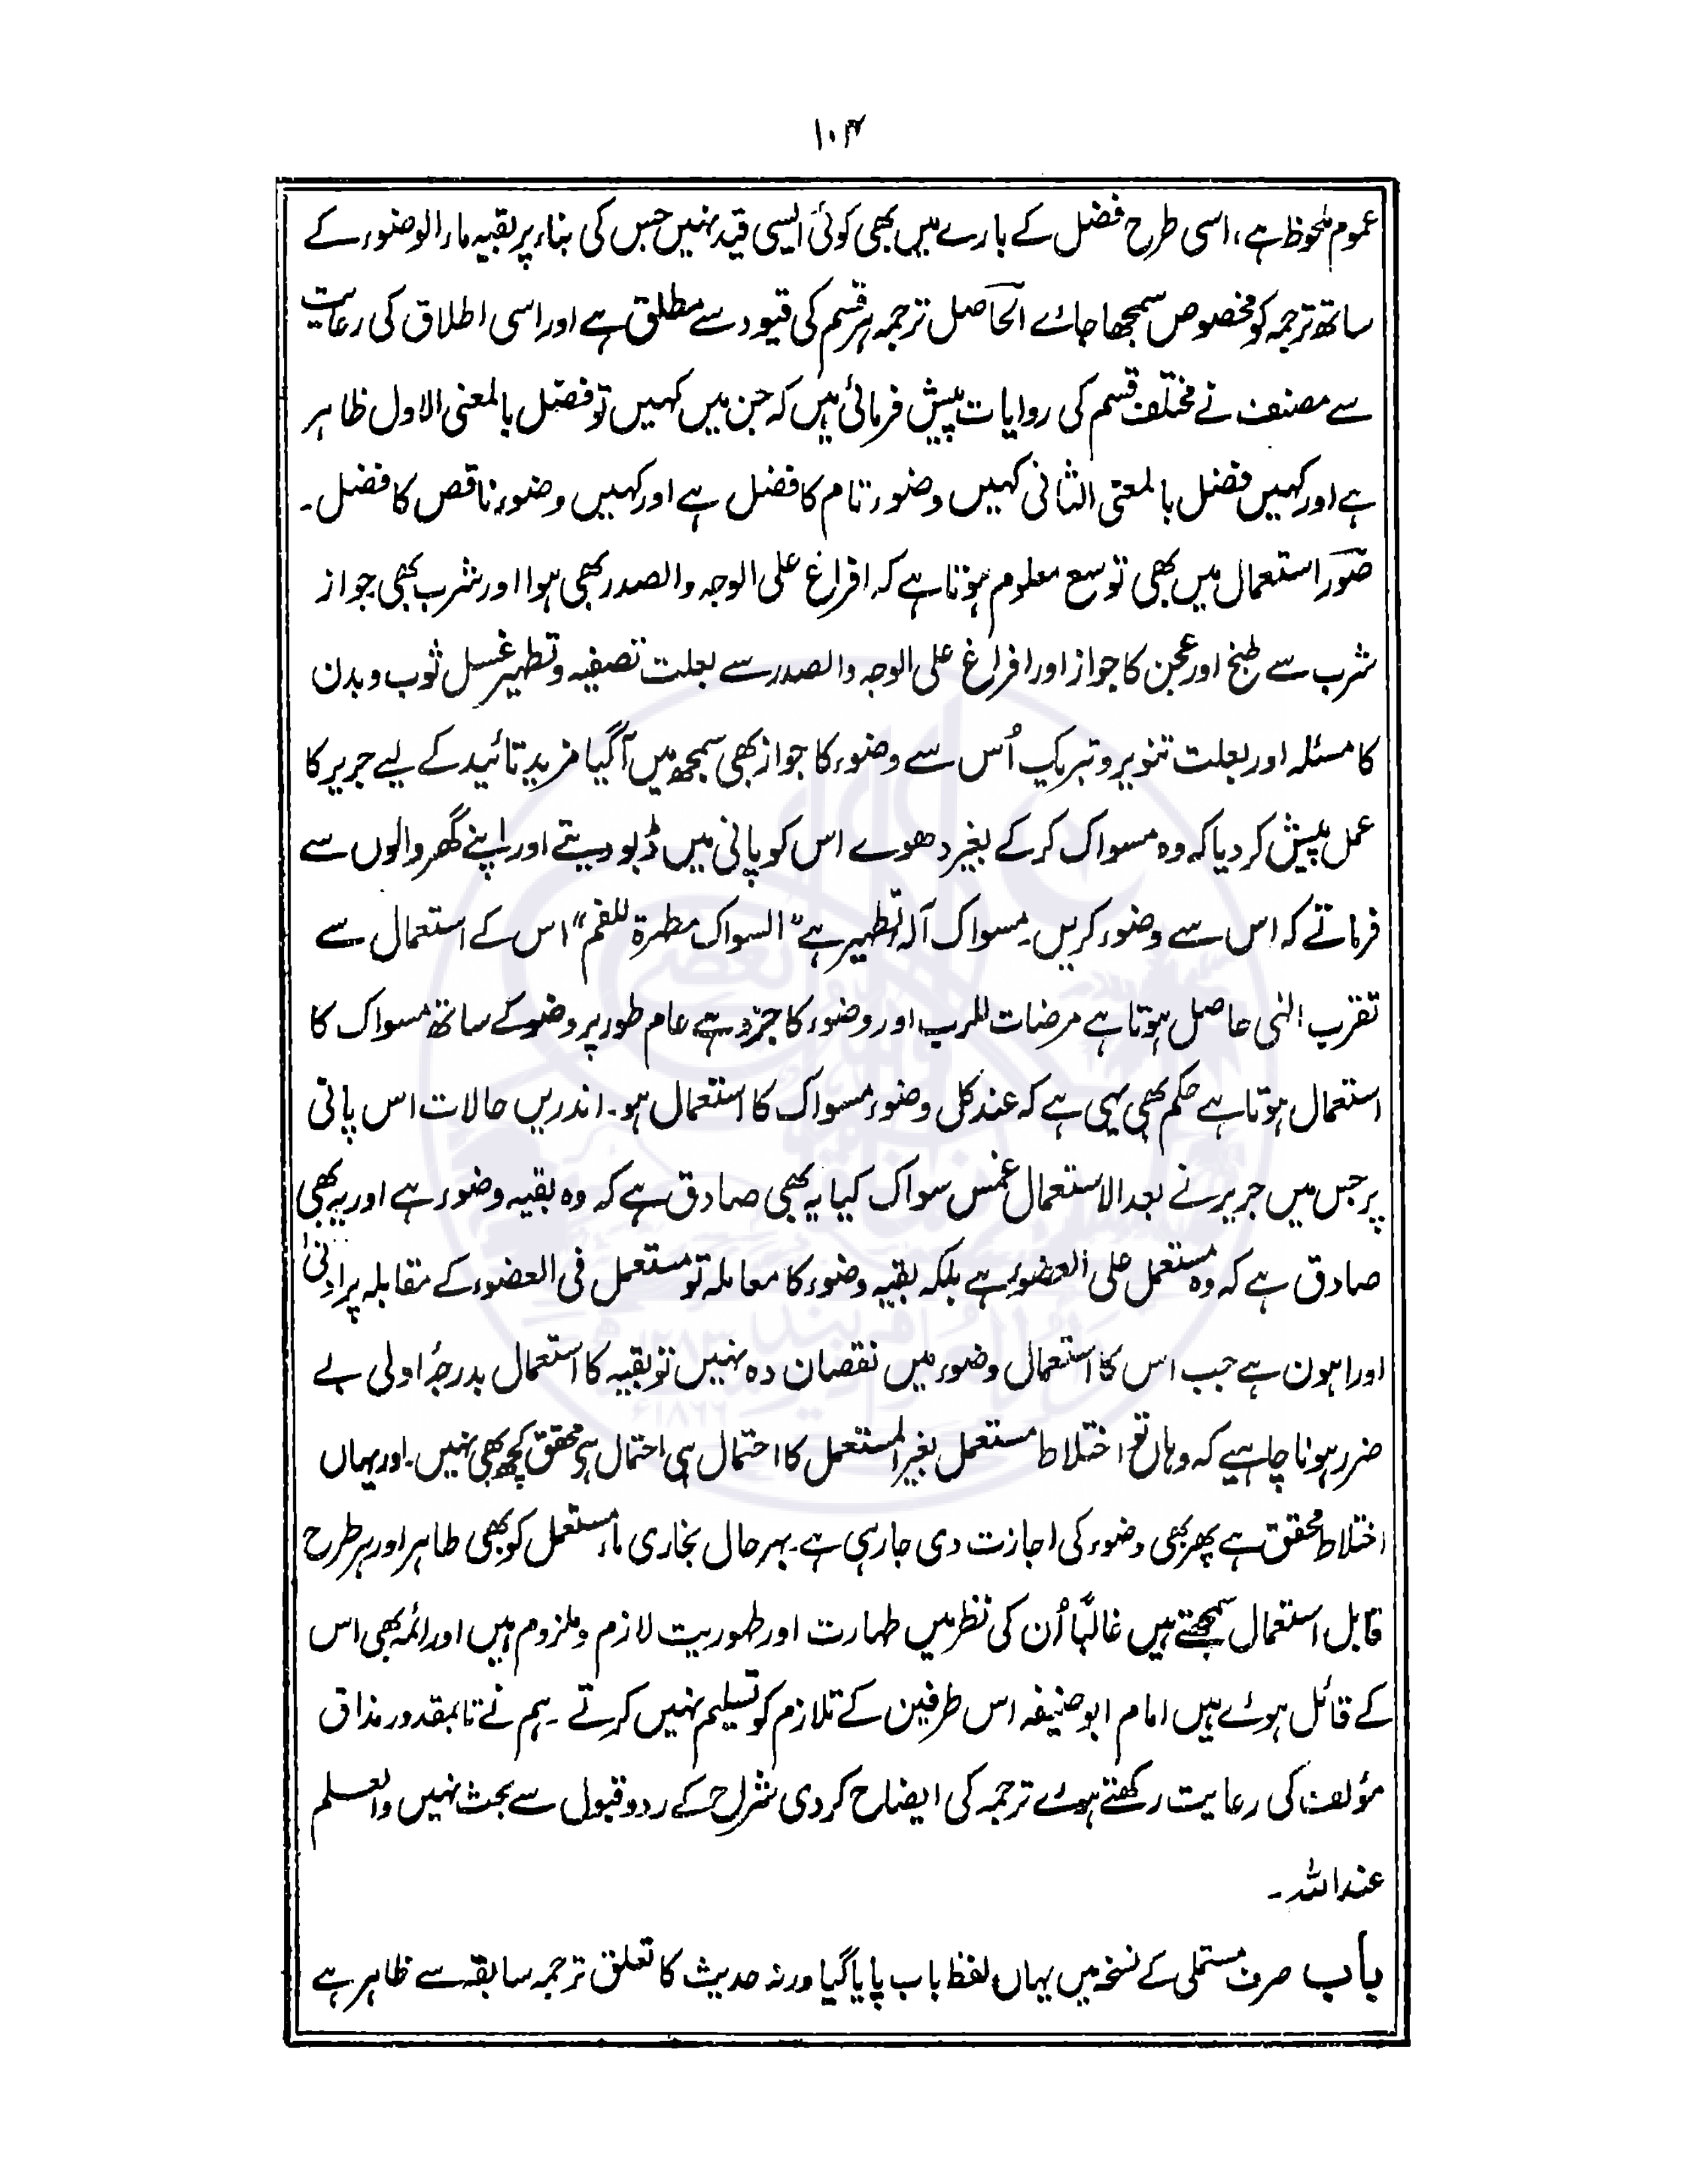 ۱۰۴
عموم ملحوظ ہے، اسی طرح فضل کے بارے میں بھی کوئی ایسی قید نہیں جس کی بناء پر بقیہ ماء الوضوء کے
ساتھ ترجمہ کو مخصوص سمجھا جائے الحاصل ترجمہ ہر قسم کی قیود سے مطلق ہے اور اسی اطلاق کی رعایت
سے مصنف نے مختلف قسم کی روایات پیش فرمائی ہیں کہ جن میں کہیں تو فضل بالمعنی الاول ظاہر
ہے اور کہیں فضل بالمعنی الثانی کہیں وضوء تام کا فضل ہے اور کہیں وضوء ناقص کا فضل۔
صور استعمال میں بھی توسع معلوم ہوتا ہے کہ افراغ علی الوجہ والصدر بھی ہوا اور شرب بھی جواز
شرب سے طبخ اور عجن کا جواز اور افراغ علی الوجہ والصدر سے بعلت تصفیہ و تطہیر غسل ثوب و بدن
کا مسئلہ اور بعلت تنویر و تبریک اُس سے وضوء کا جواز بھی سمجھ میں آگیا مزید تائید کے لیے جریر کا
عمل پیش کر دیا کہ وہ مسواک کرکے بغیر دھوے اس کو پانی میں ڈبو دیتے اور اپنے گھر والوں سے
فرماتے کہ اس سے وضوء کریں۔ مسواک آلۂ تطہیر ہے "السواک مطہرۃ للفم" اس کے استعمال سے
تقرب الٰہی حاصل ہوتا ہے مرضات للرب اور وضوء کا جزء ہے عام طور پر وضو کے ساتھ مسواک کا
استعمال ہوتا ہے حکم بھی یہی ہے کہ عند کل وضوء مسواک کا استعمال ہو۔ اندریں حالات اس پانی
پر جس میں جریر نے بعد الاستعمال غمس سواک کیا یہ بھی صادق ہے کہ وہ بقیہ وضوء ہے اور یہ بھی
صادق ہے کہ وہ مستعمل علی العضوء ہے بلکہ بقیہ وضوء کا معاملہ تو مستعمل فی العضوء کے مقابلہ پر ادنیٰ
اور اہون ہے جب اس کا استعمال وضوء میں نقصان دہ نہیں تو بقیہ کا استعمال بدرجۂ اولی بے
ضرر ہونا چاہیے کہ وہاں تو اختلاط مستعمل بغیر المستعمل کا احتمال ہی احتمال ہے محقق کچھ بھی نہیں۔ اور یہاں
اختلاط محقق ہے پھر بھی وضوء کی اجازت دی جارہی ہے۔ بہر حال بخاری ماء مستعمل کو بھی طاہر اور ہر طرح
قابل استعمال سمجھتے ہیں غالبًا اُن کی نظر میں طہارت اور طہوریت لازم و ملزوم ہیں اور ائمہ بھی اس
کے قائل ہوئے ہیں امام ابو حنیفہ اس طرفین کے تلازم کو تسلیم نہیں کرتے۔ ہم نے تا بمقدور مذاق
مؤلف کی رعایت رکھتے ہوئے ترجمہ کی ایضاح کر دی شراح کے رد و قبول سے بحث نہیں والعلم
عند اللہ۔
باب صرف مستملی کے نسخہ میں یہاں لفظ باب پایا گیا ورنہ حدیث کا تعلق ترجمہ سابقہ سے ظاہر ہے